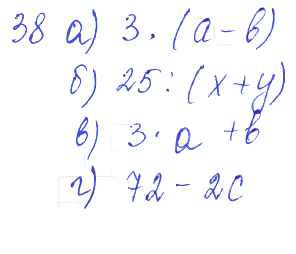 38 а) 3 · (a − в)
б) 25 : (x + y)
в) 3 · a + в
г) 72 − 2c